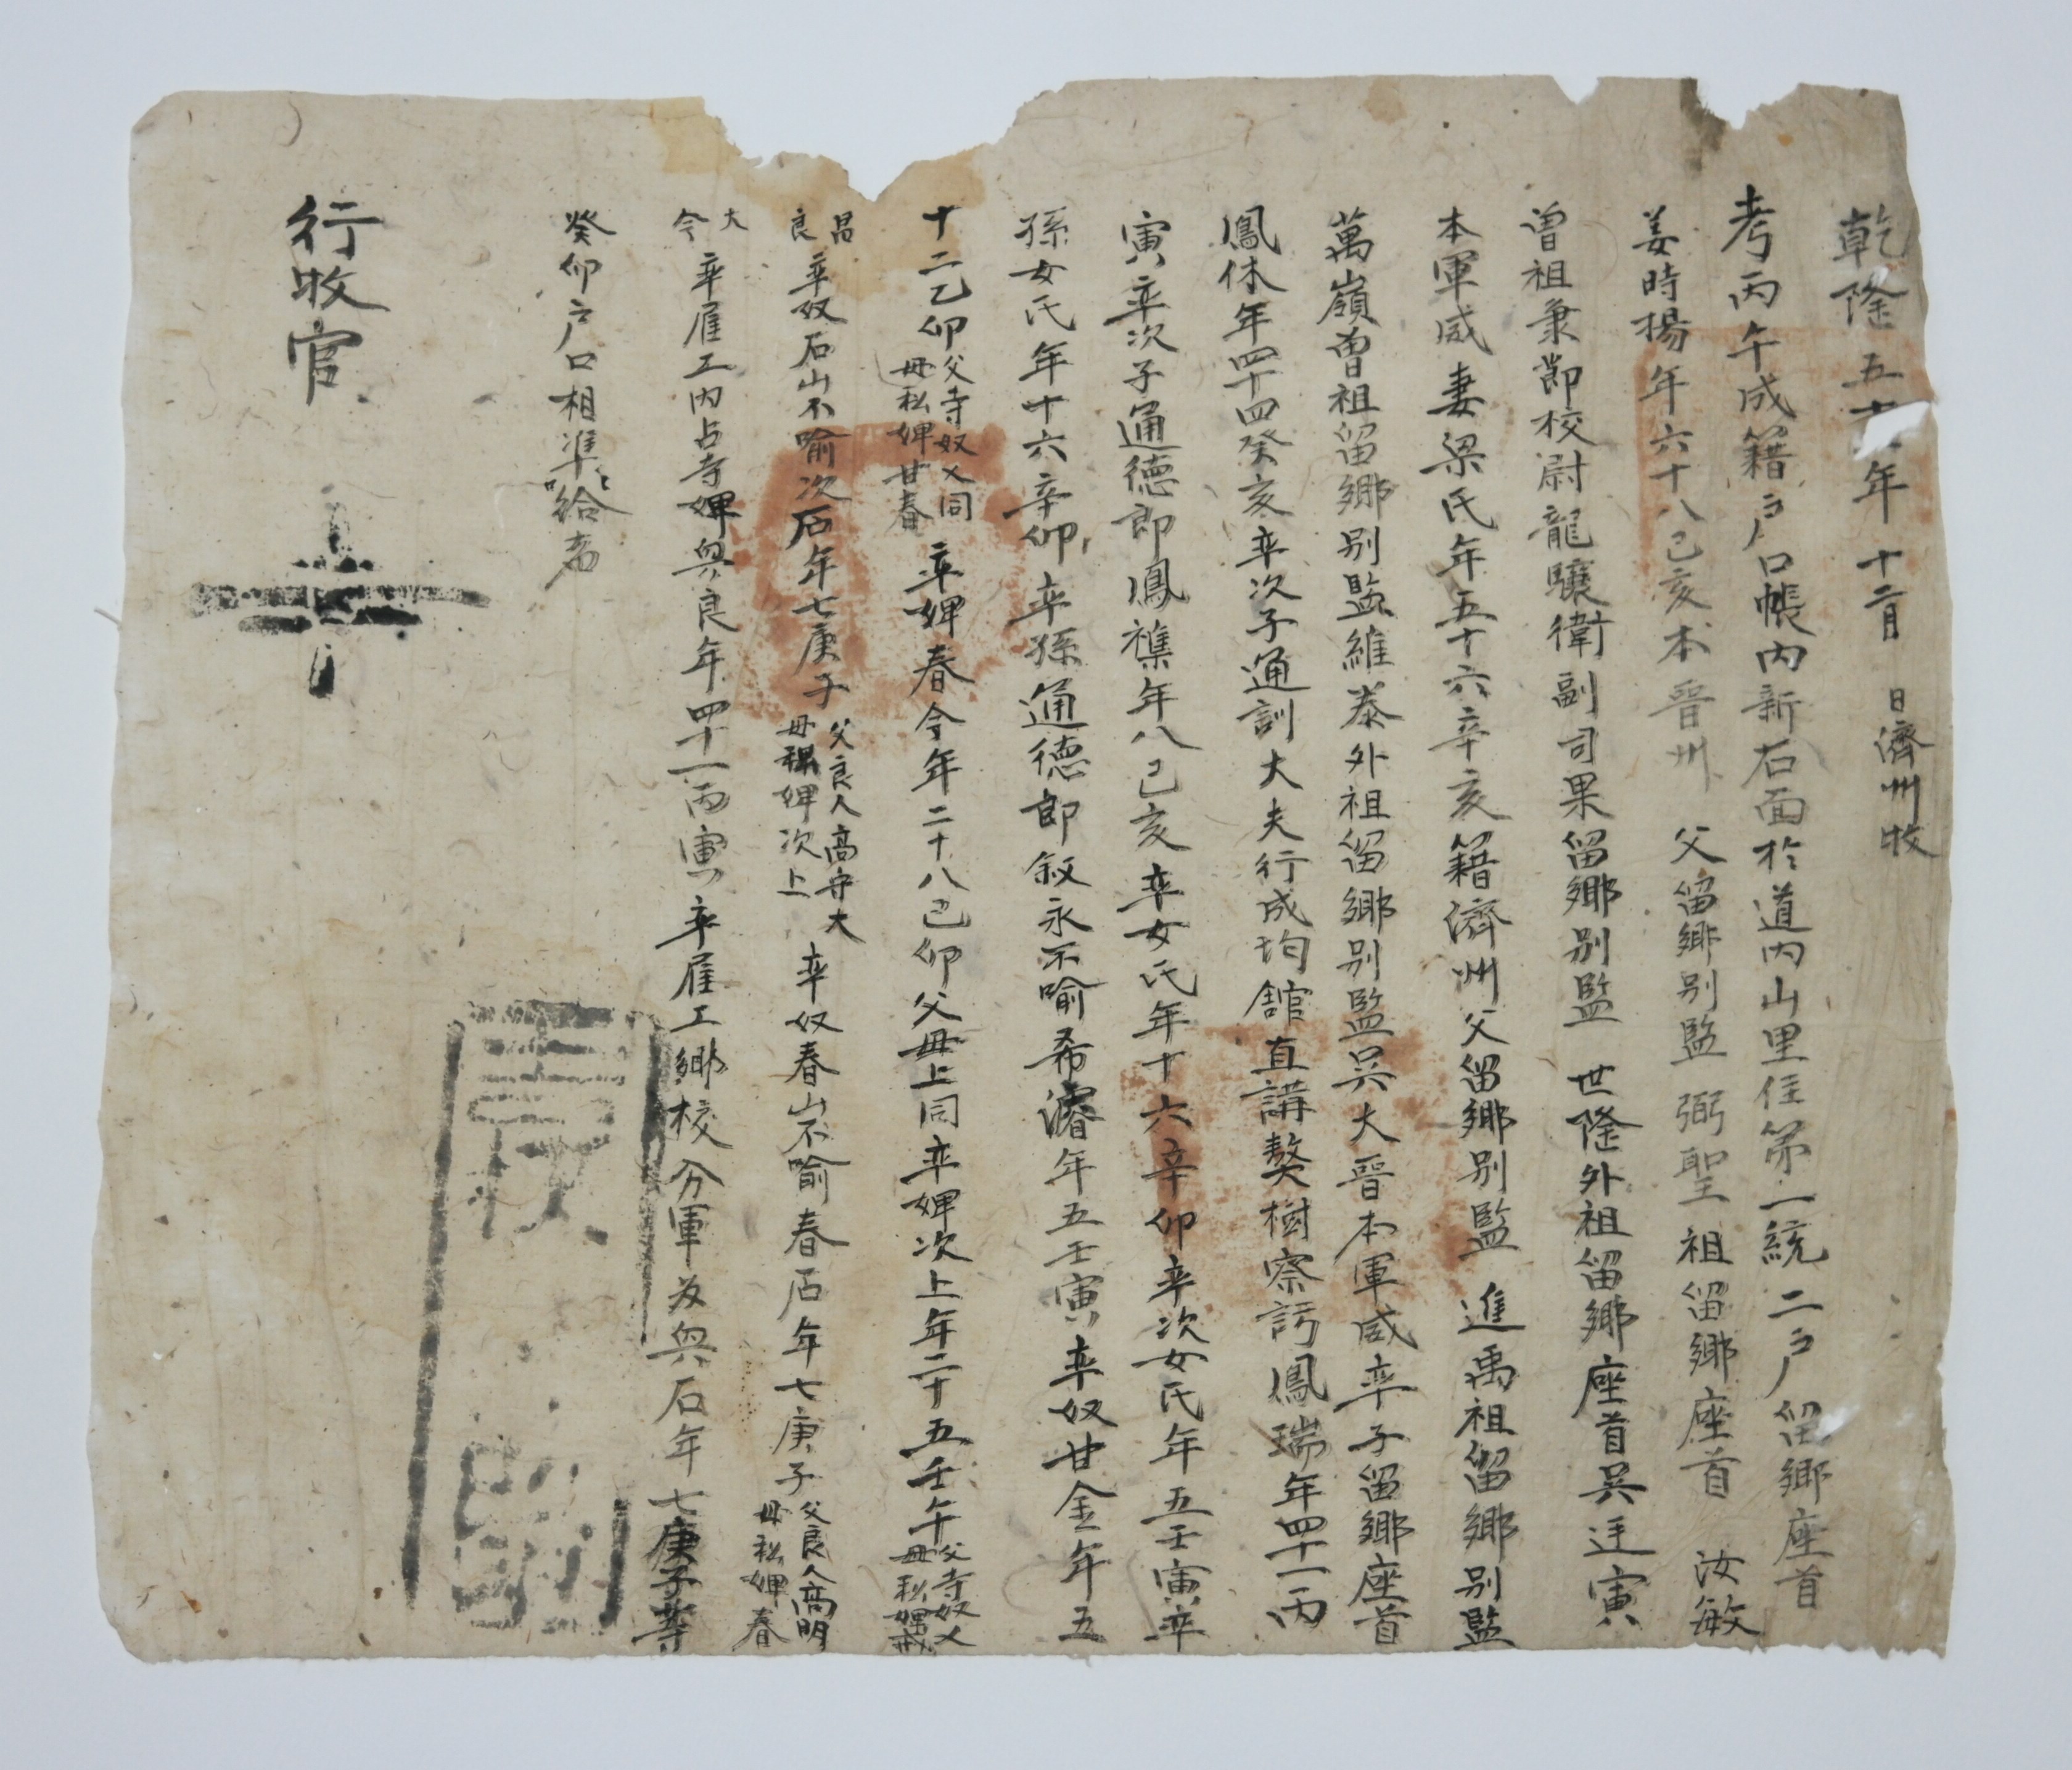 乾隆五十年十二月 日濟州牧
考丙午成籍戶口帳內新右面於道內山里住第一統二戶留鄉座首
姜時揚年六十八己亥本晉州 父留鄉別監 弼聖祖留鄉座首 汝敏
曽祖秉節校尉龍驤衛副司果留鄉別監 世隆外祖留鄉座首吳廷寅
本軍威妻梁氏年五十六辛亥籍濟州父留鄉別監 進禹祖留鄉別監
萬嶺曽祖留鄉別監維泰外祖留鄉別監吳大晉本軍威率子留鄉座首
鳳休年四十四癸亥率次子通訓大夫行成均館直講獒樹察訪鳳瑞年四十一丙
寅率次子通德郎鳳樵年八己亥率女氏年十六辛卯率次女氏年五壬寅率
孫女氏年十六辛卯率孫通德郎叙永不喻希濬年五壬寅率奴甘金年五
十二乙卯父寺奴乂同母私婢甘春率婢春今年二十八己卯父母上同率婢次上年二十五壬午父寺奴乂母私婢戒
昌良率奴石山不喻次石年七庚子父良人高守大母私婢次上率奴春山不喻春石年七庚子父良人高明母私婢春
大今率雇工內占寺婢與良年四十一丙寅率雇工鄉校分軍友與石年七庚子等
癸卯戶口相準給者
行牧官